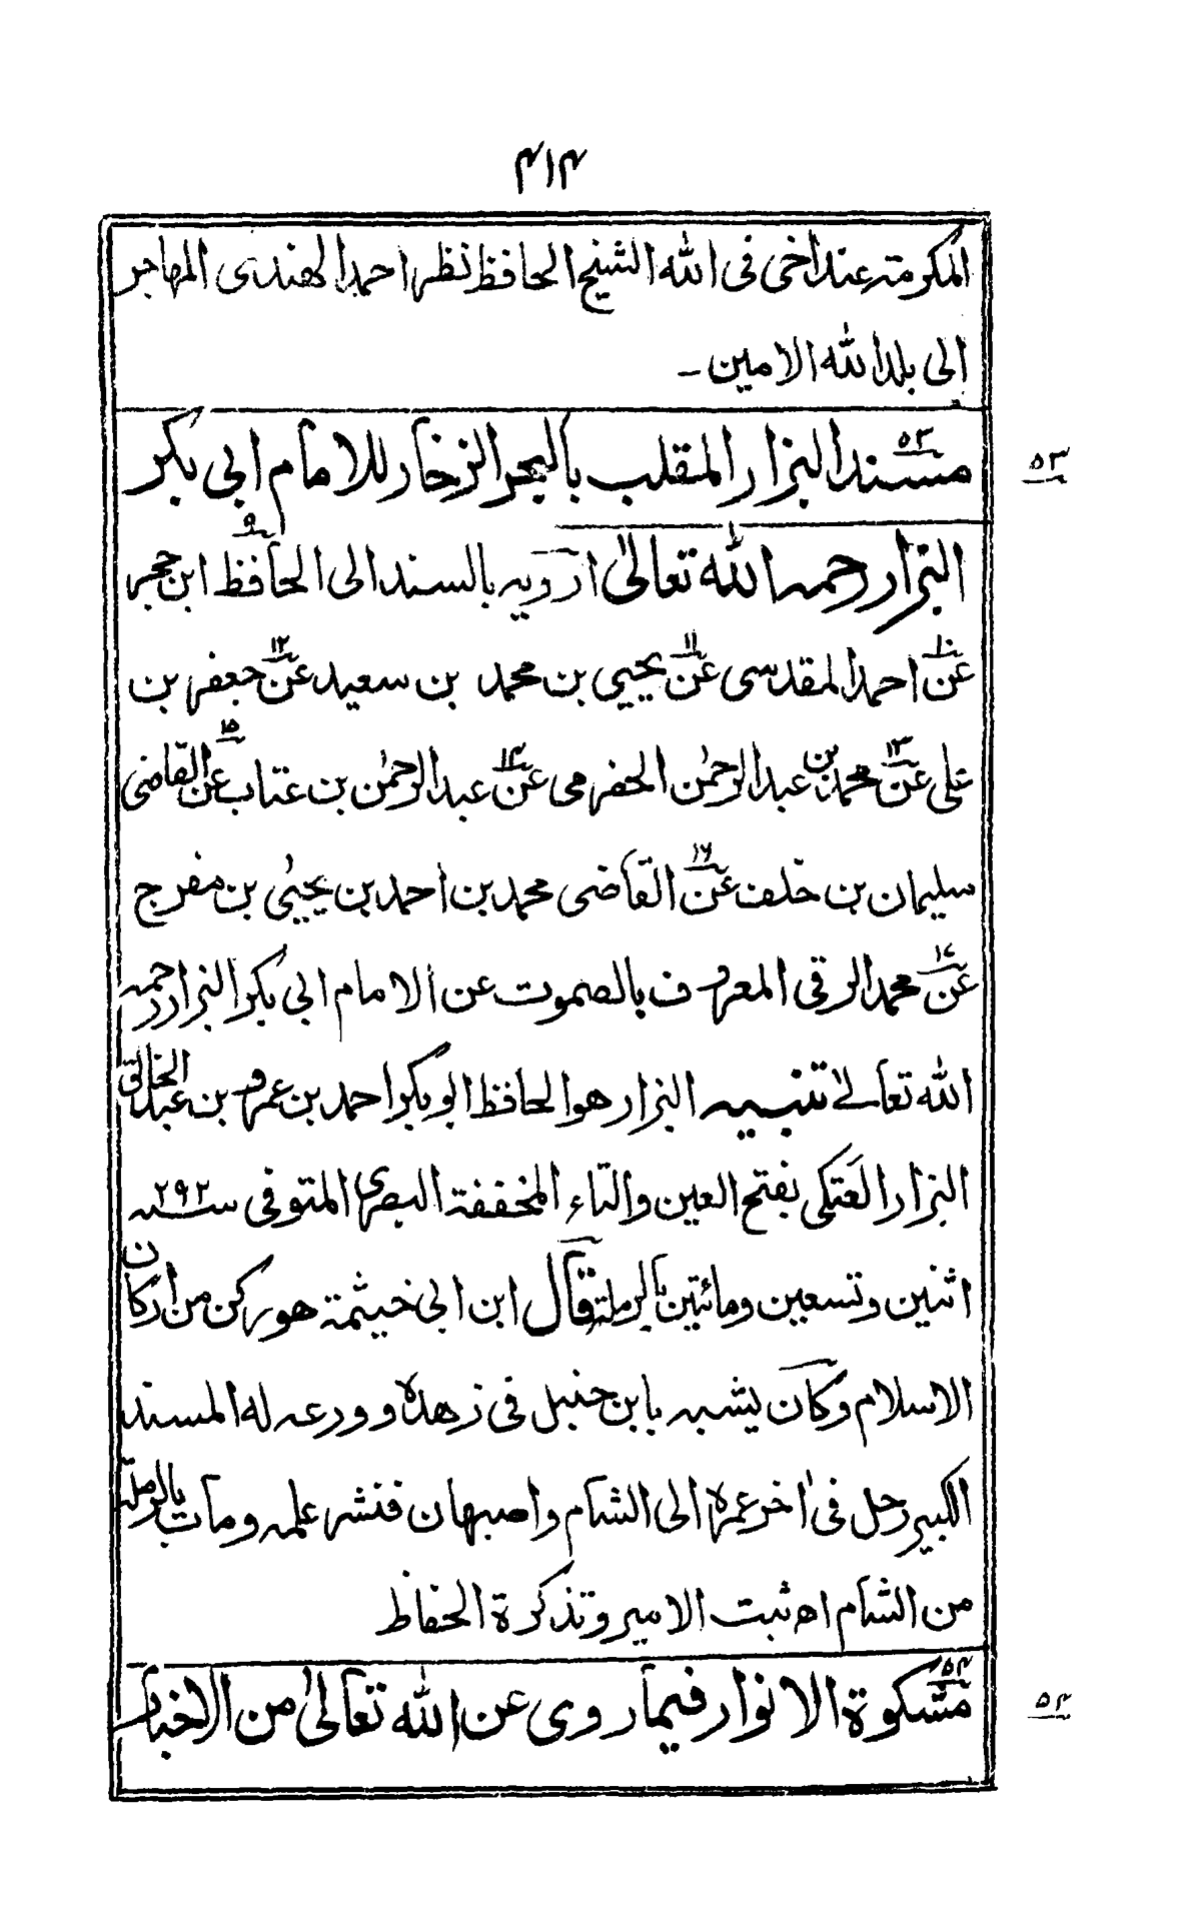 ۴۱۴
المكرمة عند اخى فى الله الشيخ الحافظ نظر احمد الهندى المهاجر
الى بلد الله الامين ـ
۵۳
مسند البزار المقلب بالبحر الزخار للامام ابى بكر
۵۳
البزار رحمه الله تعالىٰ ارويه بالسند الى الحافظ ابن حجر
۹
عن احمد المقدسى عن يحيى بن محمد بن سعيد عن جعفر بن
۱۰ ۱۱ ۱۲
على عن محمد بن عبد الرحمٰن الحضرمى عن عبد الرحمٰن بن عتاب عن القاضى
۱۳ ۱۴ ۱۵
سليمان بن خلف عن القاضى محمد بن احمد بن يحيىٰ بن مفرج
۱۶
عن محمد الرقى المعروف بالصموت عن الامام ابى بكر البزار رحمه
۱۷
الله تعالىٰ تنبيه البزار هو الحافظ ابو بكر احمد بن عمرو بن عبد الخالق
البزار العَتَكى بفتح العين والتاء المخففة البصرى المتوفى سنه ۲۹۲
اثنين وتسعين ومائتين بالرملة قال ابن ابى خيثمة هو ركن من اركان
الاسلام وكان يشبه بابن حنبل فى زهده وورعه له المسند
الكبير رحل فى اٰخر عمره الى الشام واصبهان فنشر علمه ومات بالرملة
من الشام اه ثبت الامير وتذكرة الحفاظ
۵۴
مشكوة الانوار فيما روى عن الله تعالىٰ من الاخبار
۵۴